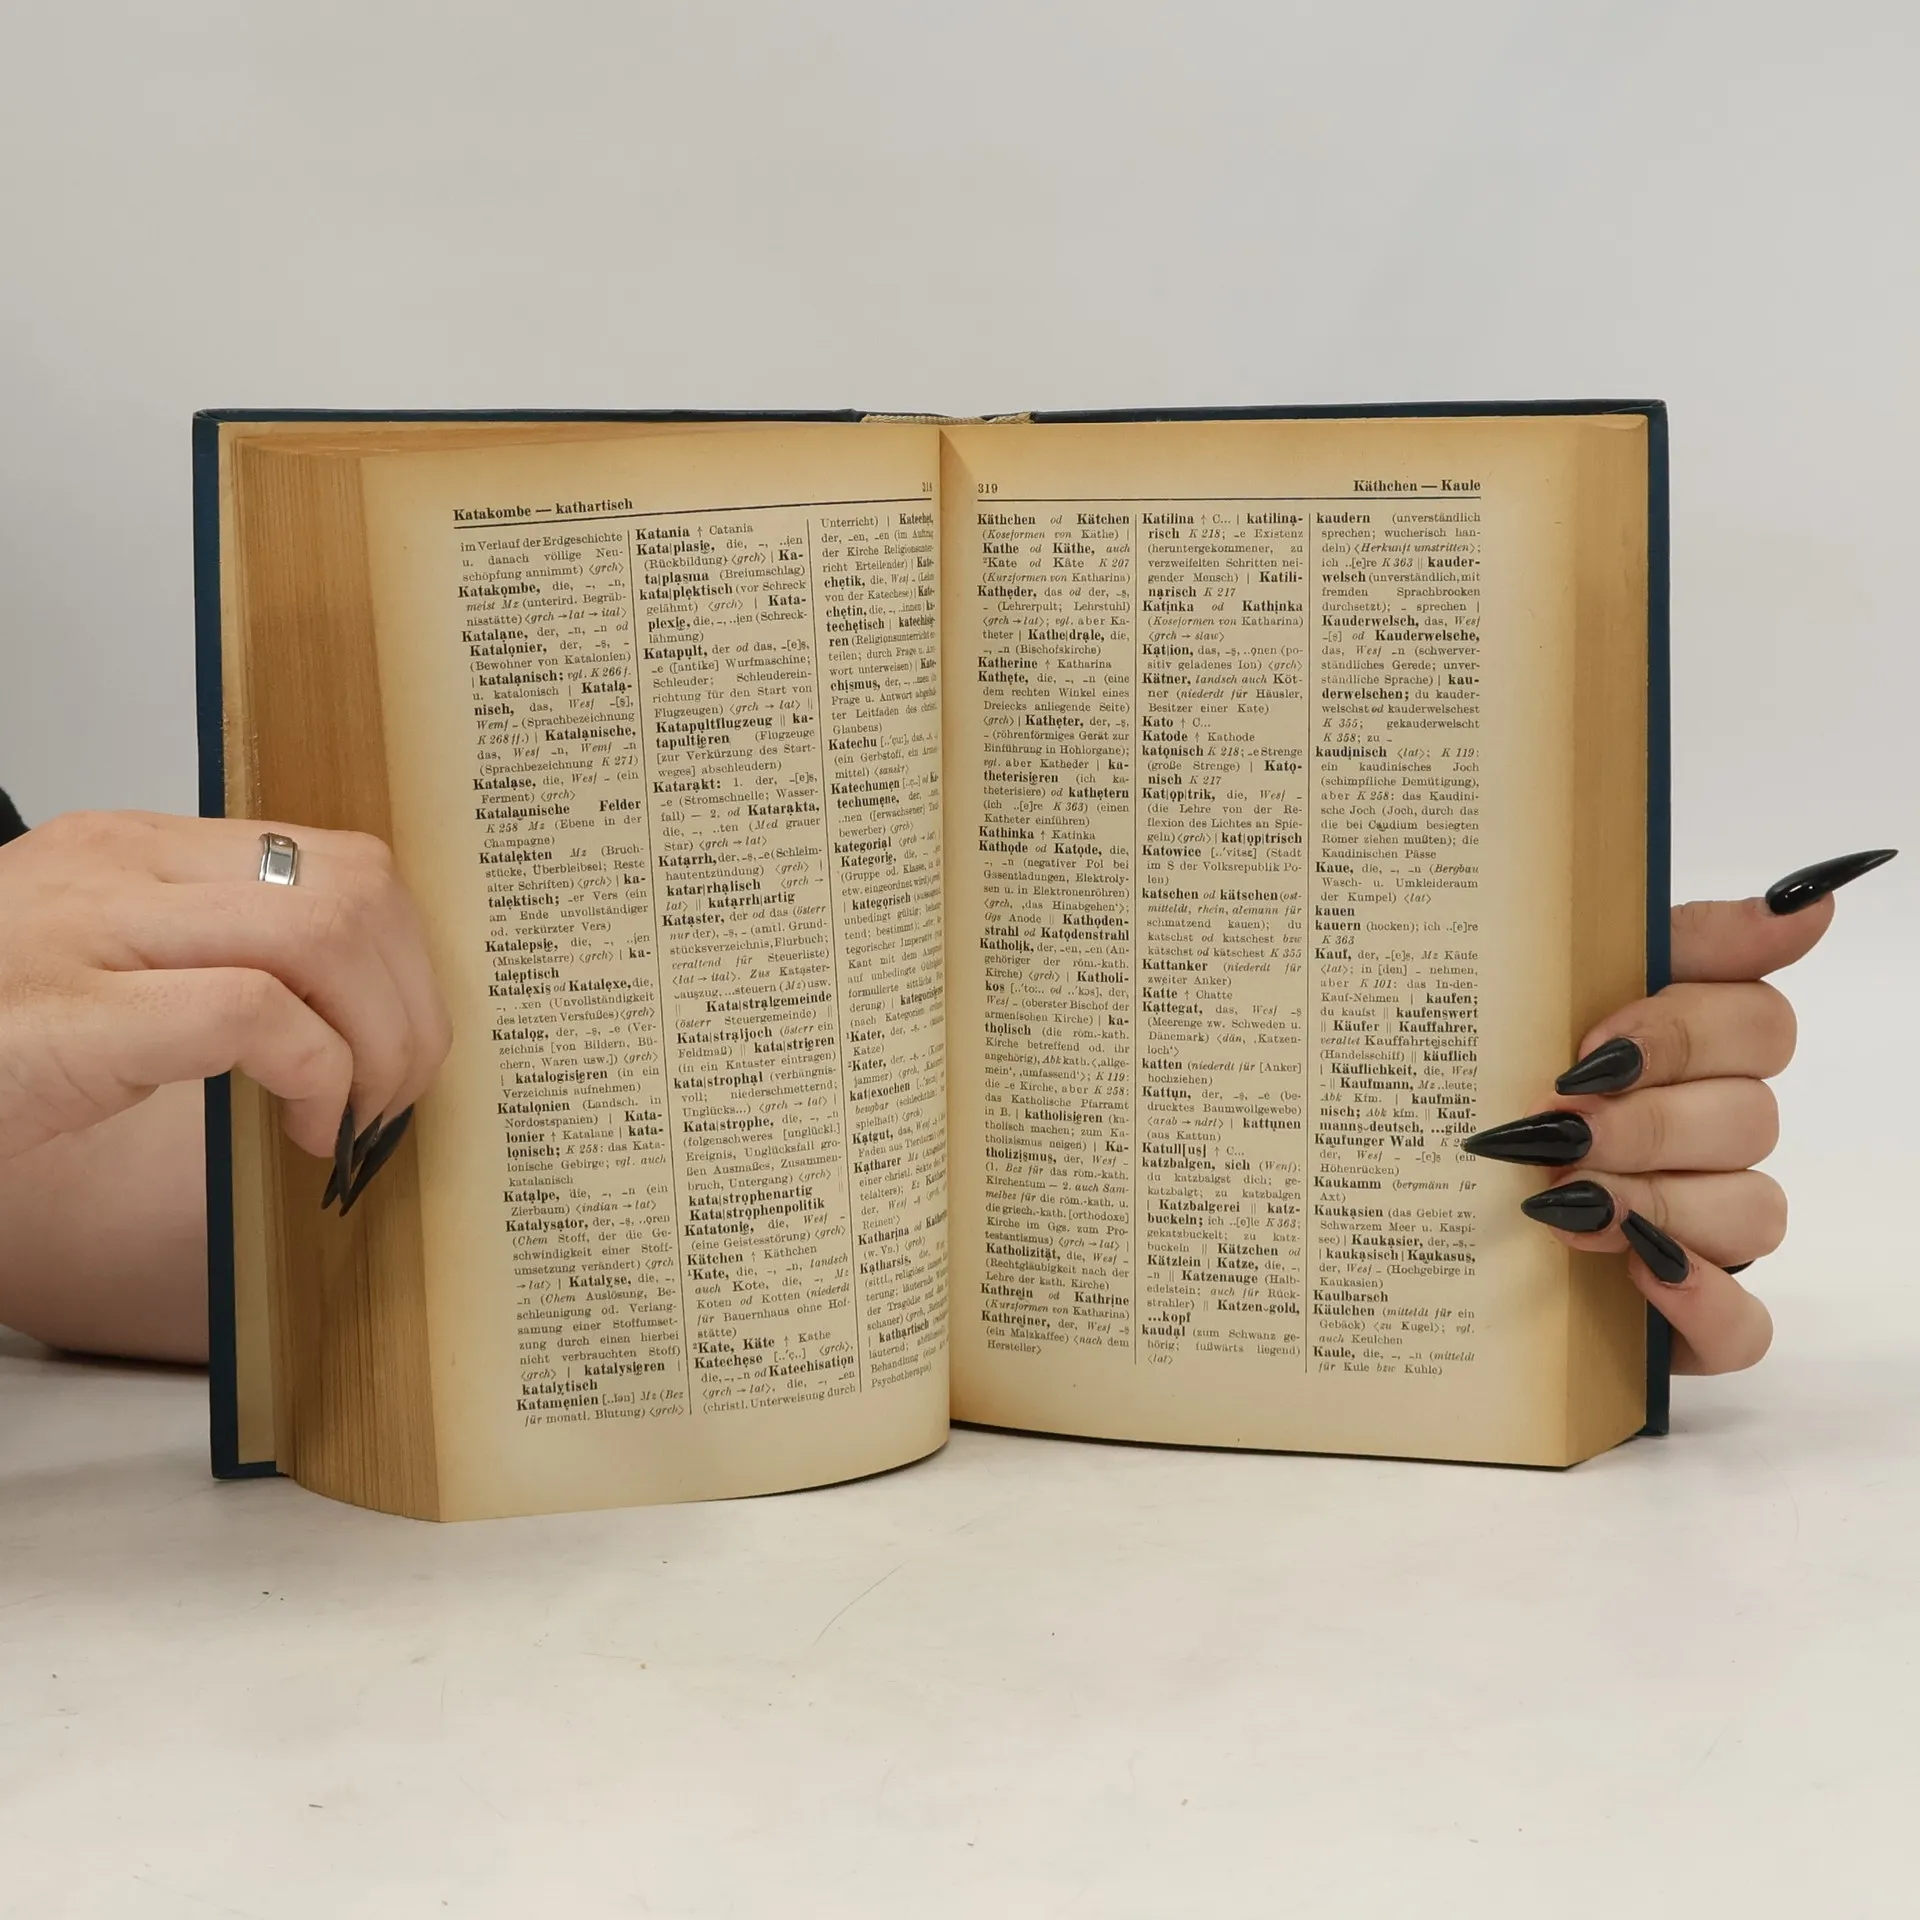 Katakombe — kathartisch
318
im Verlauf der Erdgeschichte
u. danach völlige Neu-
schöpfung annimmt) ⟨grch⟩
Katakombe, die, –, –n,
meist Mz (unterird. Begräb-
nisstätte) ⟨grch→lat→ital⟩
Katalane, der, –n, –n od
Katalonier, der, –s, –
(Bewohner von Katalonien)
| katalanisch; vgl. K 266 f.
u. katalonisch | Katala-
nisch, das, Wesf –[s],
Wemf – (Sprachbezeichnung
K 268 ff.) | Katalanische,
das, Wesf –n, Wemf –n
(Sprachbezeichnung K 271)
Katalase, die, Wesf – (ein
Ferment) ⟨grch⟩
Katalaunische Felder
K 258 Mz (Ebene in der
Champagne)
Katalekten Mz (Bruch-
stücke, Überbleibsel; Reste
alter Schriften) ⟨grch⟩ | ka-
talektisch; –er Vers (ein
am Ende unvollständiger
od. verkürzter Vers)
Katalepsie, die, –, ..ien
(Muskelstarre) ⟨grch⟩ | ka-
taleptisch
Katalexis od Katalexe, die,
–, ..xen (Unvollständigkeit
des letzten Versfußes) ⟨grch⟩
Katalog, der, –s, –e (Ver-
zeichnis [von Bildern, Bü-
chern, Waren usw.]) ⟨grch⟩
| katalogisieren (in ein
Verzeichnis aufnehmen)
Katalonien (Landsch. in
Nordostspanien) | Kata-
lonier ↑ Katalane | kata-
lonisch; K 258: das Kata-
lonische Gebirge; vgl. auch
katalanisch
Katalpe, die, –, –n (ein
Zierbaum) ⟨indian→lat⟩
Katalysator, der, –s, ..oren
(Chem Stoff, der die Ge-
schwindigkeit einer Stoff-
umsetzung verändert) ⟨grch
→lat⟩ | Katalyse, die, –,
–n (Chem Auslösung, Be-
schleunigung od. Verlang-
samung einer Stoffumset-
zung durch einen hierbei
nicht verbrauchten Stoff)
⟨grch⟩ | katalysieren |
katalytisch
Katamenien [..ĭən] Mz (Bez
für monatl. Blutung) ⟨grch⟩
Katania ↑ Catania
Kata|plasie, die, –, ..ien
(Rückbildung) ⟨grch⟩ | Ka-
ta|plasma (Breiumschlag)
kata|plektisch (vor Schreck
gelähmt) ⟨grch⟩ | Kata-
plexie, die, –, ..ien (Schreck-
lähmung)
Katapult, der od das, –[e]s,
–e ([antike] Wurfmaschine;
Schleuder; Schleuderein-
richtung für den Start von
Flugzeugen) ⟨grch→lat⟩ ||
Katapultflugzeug || ka-
tapultieren (Flugzeuge
[zur Verkürzung des Start-
weges] abschleudern)
Katarakt: 1. der, –[e]s,
–e (Stromschnelle; Wasser-
fall) — 2. od Katarakta,
die, –, ..ten (Med grauer
Star) ⟨grch→lat⟩
Katarrh, der, –s, –e (Schleim-
hautentzündung) ⟨grch⟩ |
katar|rhalisch ⟨grch→
lat⟩ || katarrh|artig
Kataster, der od das (österr
nur der), –s, – (amtl. Grund-
stücksverzeichnis, Flurbuch;
veraltend für Steuerliste)
⟨lat→ital⟩. Zus Kataster-
–auszug, ...steuern (Mz) usw.
|| Kata|stralgemeinde
(österr Steuergemeinde) ||
Kata|straljoch (österr ein
Feldmaß) || kata|strieren
(in ein Kataster eintragen)
kata|strophal (verhängnis-
voll; niederschmetternd;
Unglücks...) ⟨grch→lat⟩ |
Kata|strophe, die, –, –n
(folgenschweres [unglückl.]
Ereignis, Unglücksfall gro-
ßen Ausmaßes, Zusammen-
bruch, Untergang) ⟨grch⟩ ||
kata|strophenartig ||
Kata|strophenpolitik
Katatonie, die, Wesf –
(eine Geistesstörung) ⟨grch⟩
Kätchen ↑ Käthchen
¹Kate, die, –, –n, landsch
auch Kote, die, –, Mz
Koten od Kotten (niederdt
für Bauernhaus ohne Hof-
stätte)
²Kate, Käte ↑ Kathe
Katechese [..'ç..] ⟨grch⟩,
die, –, –n od Katechisation
⟨grch→lat⟩, die, –, –en
(christl. Unterweisung durch
Unterricht) | Katechet,
der, –en, –en (im Auftrag
der Kirche Religionsunter-
richt Erteilender) | Kate-
chetik, die, Wesf – (Lehre
von der Katechese) | Kate-
chetin, die, –, ..innen | ka-
techetisch | katechisie-
ren (Religionsunterricht er-
teilen; durch Frage u. Ant-
wort unterweisen) | Kate-
chismus, der, –, ..men (in
Frage u. Antwort abgefaß-
ter Leitfaden des christl.
Glaubens)
Katechu [..'çu:], das, –s, –s
(ein Gerbstoff, ein Arznei-
mittel)
Katechumen [..ç..] od Ka-
techumene, der, ..nen,
..nen ([erwachsener] Tauf-
bewerber) ⟨grch⟩
kategorial ⟨grch→lat⟩ |
Kategorie, die, –
(Gruppe od. Klasse, in die
etw. eingeordnet wird) ⟨grch⟩
| kategorisch
unbedingt gültig; behaup-
tend; bestimmt);
tegorischer Imperativ
Kant mit dem Anspruch
auf unbedingte Gültigkeit
formulierte sittliche
derung) | kategorisieren
(nach Kategorien
¹Kater, der, –s, –
Katze)
²Kater, der, –s, –
jammer) ⟨grch,
kat|exochen
beugbar
spielhaft) ⟨grch⟩
Katgut, das, Wesf
Faden aus
Katharer Mz
einer christl. Sekte des
telalters); Ez
der, Wesf –s
Reinen‘⟩
Katharina od
(w. Vn.) ⟨grch⟩
Katharsis, die,
(sittl., religiöse
terung; läuternde
der Tragödie auf den
schauer) ⟨grch,
| kathartisch
läuternd;
Behandlung
Psychotherapie)
319
Käthchen — Kaule
Käthchen od Kätchen
(Koseformen von Käthe) |
Kathe od Käthe, auch
²Kate od Käte K 207
(Kurzformen von Katharina)
Katheder, das od der, –s,
– (Lehrerpult; Lehrstuhl)
⟨grch→lat⟩; vgl. aber Ka-
theter | Kathe|drale, die,
–, –n (Bischofskirche)
Katherine ↑ Katharina
Kathete, die, –, –n (eine
dem rechten Winkel eines
Dreiecks anliegende Seite)
⟨grch⟩ | Katheter, der, –s,
– (röhrenförmiges Gerät zur
Einführung in Hohlorgane);
vgl. aber Katheder | ka-
theterisieren (ich ka-
theterisiere) od kathetern
(ich ..[e]re K 363) (einen
Katheter einführen)
Kathinka ↑ Katinka
Kathode od Katode, die,
–, –n (negativer Pol bei
Gasentladungen, Elektroly-
sen u. in Elektronenröhren)
⟨grch, ‚das Hinabgehen‘⟩;
Ggs Anode || Kathoden-
strahl od Katodenstrahl
Katholik, der, –en, –en (An-
gehöriger der röm.-kath.
Kirche) ⟨grch⟩ | Katholi-
kos [..'to:.. od ..'kɔs], der,
Wesf – (oberster Bischof der
armenischen Kirche) | ka-
tholisch (die röm.-kath.
Kirche betreffend od. ihr
angehörig), Abk kath. ⟨‚allge-
mein‘, ‚umfassend‘⟩; K 119:
die –e Kirche, aber K 258:
das Katholische Pfarramt
in B. | katholisieren (ka-
tholisch machen; zum Ka-
tholizismus neigen) | Ka-
tholizismus, der, Wesf –
(1. Bez für das röm.-kath.
Kirchentum — 2. auch Sam-
melbez für die röm.-kath. u.
die griech.-kath. [orthodoxe]
Kirche im Ggs. zum Pro-
testantismus) ⟨grch→lat⟩ |
Katholizität, die, Wesf –
(Rechtgläubigkeit nach der
Lehre der kath. Kirche)
Kathrein od Kathrine
(Kurzformen von Katharina)
Kathreiner, der, Wesf –s
(ein Malzkaffee) ⟨nach dem
Hersteller⟩
Katilina ↑ C... | katilina-
risch K 218; –e Existenz
(heruntergekommener, zu
verzweifelten Schritten nei-
gender Mensch) | Katili-
narisch K 217
Katinka od Kathinka
(Koseformen von Katharina)
⟨grch→slaw⟩
Kat|ion, das, –s, ..onen (po-
sitiv geladenes Ion) ⟨grch⟩
Kätner, landsch auch Köt-
ner (niederdt für Häusler,
Besitzer einer Kate)
Kato ↑ C...
Katode ↑ Kathode
katonisch K 218; –e Strenge
(große Strenge) | Kato-
nisch K 217
Kat|op|trik, die, Wesf –
(die Lehre von der Re-
flexion des Lichtes an Spie-
geln) ⟨grch⟩ | kat|op|trisch
Katowice [..'vitsɛ] (Stadt
im S der Volksrepublik Po-
len)
katschen od kätschen (ost-
mitteldt, rhein, alemann für
schmatzend kauen); du
katschst od katschest bzw
kätschst od kätschest K 355
Kattanker (niederdt für
zweiter Anker)
Katte ↑ Chatte
Kattegat, das, Wesf –s
(Meerenge zw. Schweden u.
Dänemark) ⟨dän, ‚Katzen-
loch‘⟩
katten (niederdt für [Anker]
hochziehen)
Kattun, der, –s, –e (be-
drucktes Baumwollgewebe)
⟨arab→ndrl⟩ | kattunen
(aus Kattun)
Katull[us] ↑ C...
katzbalgen, sich (Wenf);
du katzbalgst dich; ge-
katzbalgt; zu katzbalgen
| Katzbalgerei || katz-
buckeln; ich ..[e]le K 363;
gekatzbuckelt; zu katz-
buckeln || Kätzchen od
Kätzlein | Katze, die, –,
–n || Katzenauge (Halb-
edelstein; auch für Rück-
strahler) || Katzen–gold,
...kopf
kaudal (zum Schwanz ge-
hörig; fußwärts liegend)
⟨lat⟩
kaudern (unverständlich
sprechen; wucherisch han-
deln) ⟨Herkunft umstritten⟩;
ich ..[e]re K 363 || kauder-
welsch (unverständlich, mit
fremden Sprachbrocken
durchsetzt); – sprechen |
Kauderwelsch, das, Wesf
–[s] od Kauderwelsche,
das, Wesf –n (schwerver-
ständliches Gerede; unver-
ständliche Sprache) | kau-
derwelschen; du kauder-
welschst od kauderwelschest
K 355; gekauderwelscht
K 358; zu –
kaudinisch ⟨lat⟩; K 119:
ein kaudinisches Joch
(schimpfliche Demütigung),
aber K 258: das Kaudini-
sche Joch (Joch, durch das
die bei Caudium besiegten
Römer ziehen mußten); die
Kaudinischen Pässe
Kaue, die, –, –n (Bergbau
Wasch- u. Umkleideraum
der Kumpel) ⟨lat⟩
kauen
kauern (hocken); ich ..[e]re
K 363
Kauf, der, –[e]s, Mz Käufe
⟨lat⟩; in [den] – nehmen,
aber K 101: das In-den-
Kauf-Nehmen | kaufen;
du kaufst || kaufenswert
|| Käufer || Kauffahrer,
veraltet Kauffahrteischiff
(Handelsschiff) || käuflich
| Käuflichkeit, die, Wesf
– || Kaufmann, Mz ..leute;
Abk Kfm. | kaufmän-
nisch; Abk kfm. || Kauf-
manns–deutsch, ...gilde
Kaufunger Wald
der, Wesf – –[e]s (ein
Höhenrücken)
Kaukamm (bergmänn für
Axt)
Kaukasien (das Gebiet zw.
Schwarzem Meer u. Kaspi-
see) | Kaukasier, der, –s, –
| kaukasisch | Kaukasus,
der, Wesf – (Hochgebirge in
Kaukasien)
Kaulbarsch
Käulchen (mitteldt für ein
Gebäck) ⟨zu Kugel⟩; vgl.
auch Keulchen
Kaule, die, –, –n (mitteldt
für Kule bzw Kuhle)